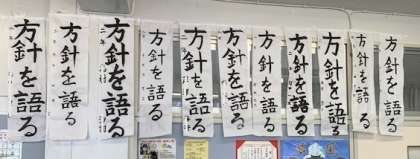 方針を語る
方針を語る
方針を語る
方針を語る
方針を語る
方針を語る
方針を語る
方針を語る
方針を語る
方針を語る
方針を語る